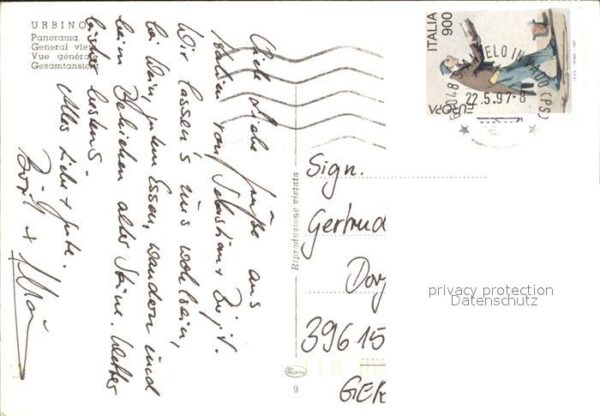 URBINO
Panorama
General view
Vue générale
Gesamtansicht
Viele liebe Grüße aus
Italien von Sebastian + Birgit.
Wir lassen's uns wohlsein,
bei Wein, gutem Essen, wandern und
beim Besehen alter Steine. Wetter
bestens.
Alles Liebe + Gute.
Birgit +
Riproduzione vietata
9
ITALIA 900
EUROPA
22.5.97-8
Sign.
Gertrud
Dor
39615
GER
privacy protection
Datenschutz